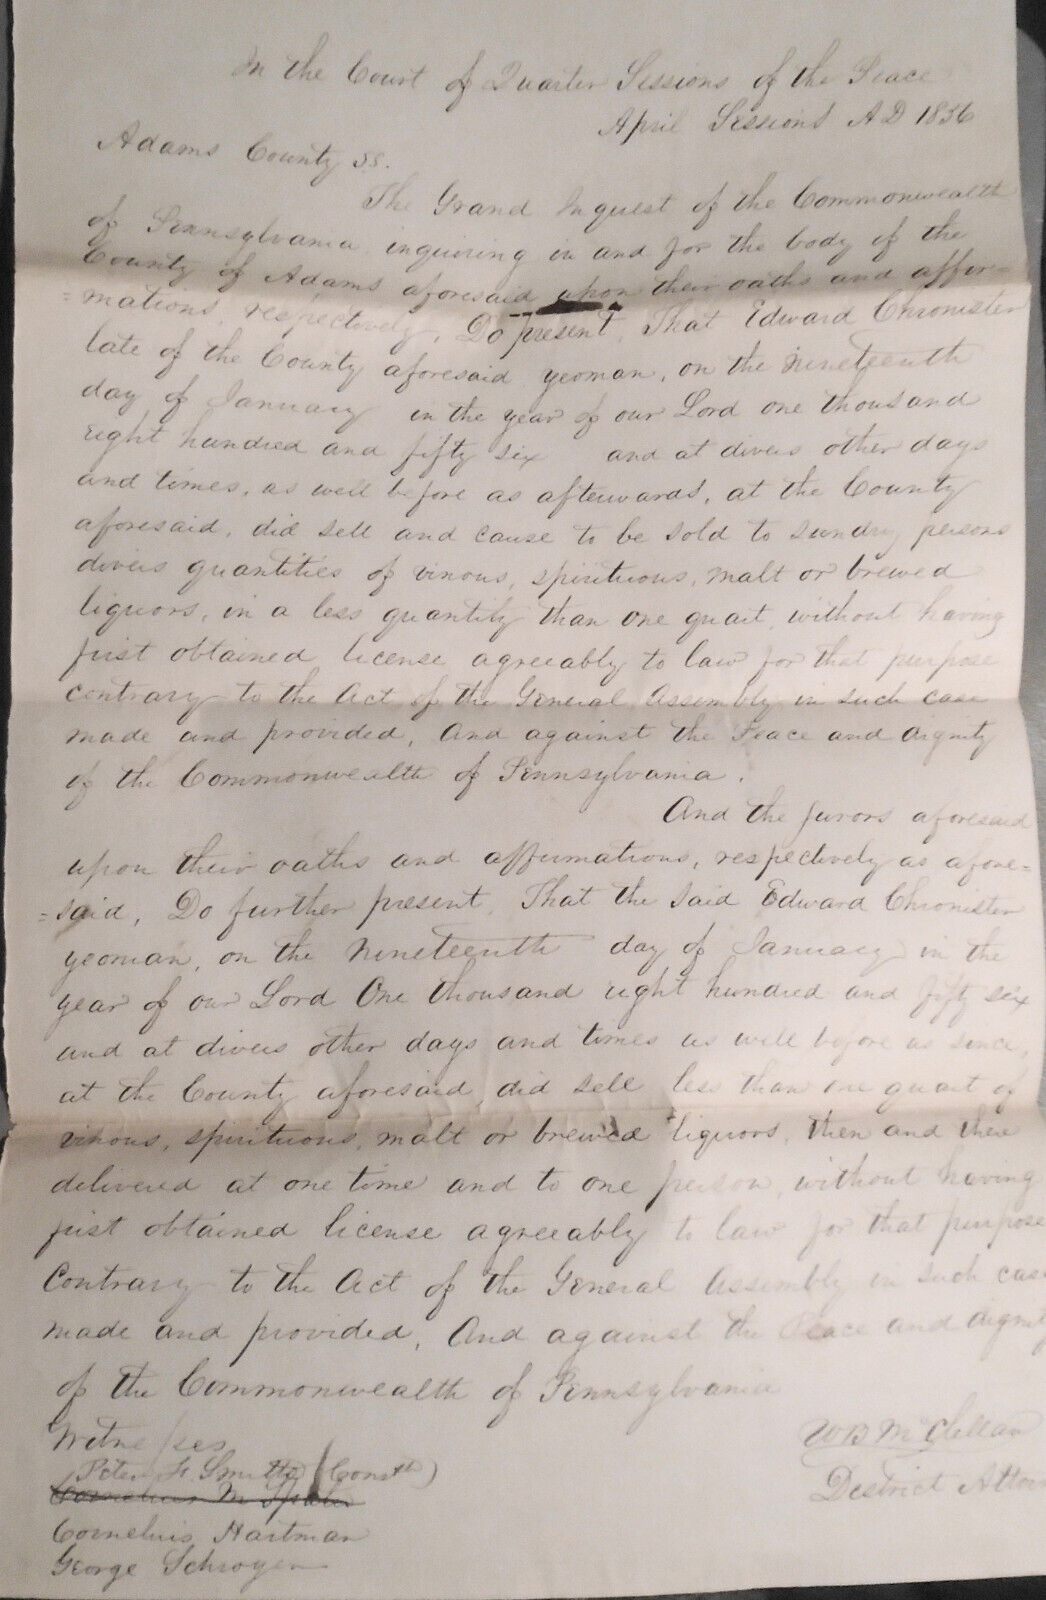 In the Court of Quarter Sessions of the Peace
April Sessions AD 1856
Adams County ss.
The Grand Inquest of the Commonwealth
of Pennsylvania inquiring in and for the body of the
County of Adams aforesaid upon their oaths and affir=
=mations, respectively, Do present, That Edward Chronister
late of the County aforesaid, yeoman, on the Nineteenth
day of January in the year of our Lord one thousand
eight hundred and fifty six and at divers other days
and times, as well before as afterwards, at the County
aforesaid, did sell and cause to be sold to sundry persons
divers quantities of vinous, spirituous, malt or brewed
liquors, in a less quantity than one quart, without having
first obtained license agreeably to law for that purpose
contrary to the Act of the General Assembly in such case
made and provided, And against the Peace and dignity
of the Commonwealth of Pennsylvania.
And the jurors aforesaid
upon their oaths and affirmations, respectively as afore=
=said, Do further present, That the said Edward Chronister
yeoman, on the Nineteenth day of January in the
year of our Lord One thousand eight hundred and fifty six
and at divers other days and times as well before as since,
at the County aforesaid, did sell less than one quart of
vinous, spirituous, malt or brewed liquors, then and there
delivered at one time and to one person, without having
first obtained license agreeably to law for that purpose
Contrary to the Act of the General Assembly in such case
made and provided, And against the Peace and dignity
of the Commonwealth of Pennsylvania
W B McClellan
District Attor
Witnesses
Peter F. Smith (Const)
Cornelius Hartman
George Schroyer